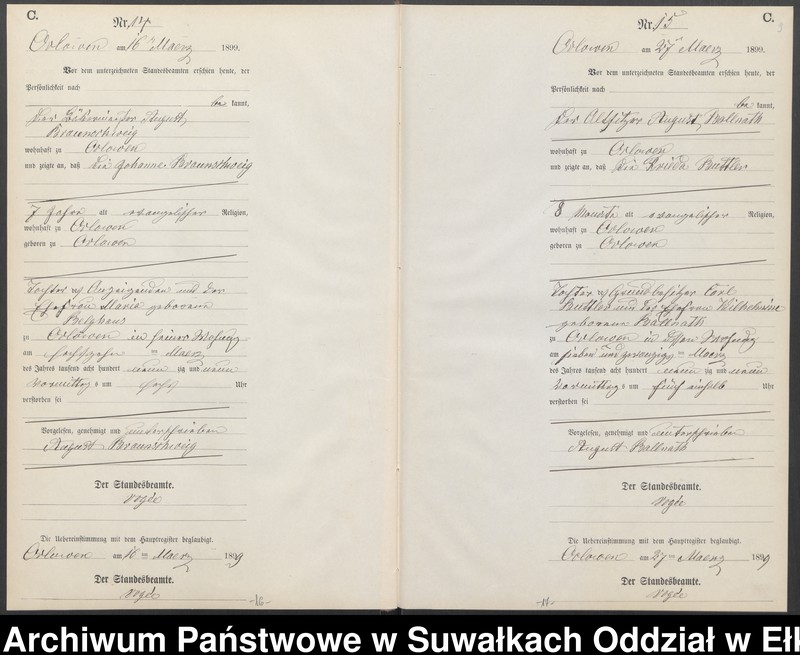 C.
Nr. 14
Orlowen am 16 ten Maerz 1899.
Vor dem unterzeichneten Standesbeamten erschien heute, der
Persönlichkeit nach
be kannt,
Der August
Braunschweig
wohnhaft zu Orlowen
und zeigte an, daß die Johanne Braunschweig
7 Jahre alt evangelischer Religion,
wohnhaft zu Orlowen
geboren zu Orlowen
Tochter des Anzeigenden und der
Ehefrau Marie geborene
Belghaus
zu Orlowen in seiner Wohnung
am sechszehn ten Maerz
des Jahres tausend acht hundert neun zig und neun
Vormittags um sechs Uhr
verstorben sei
Vorgelesen, genehmigt und unterschrieben
August Braunschweig
Der Standesbeamte.
Die Uebereinstimmung mit dem Hauptregister beglaubigt.
Orlowen am 16 ten Maerz 1899
Der Standesbeamte.
-16-
C.
Nr. 15
Orlowen am 27 ten Maerz 1899.
Vor dem unterzeichneten Standesbeamten erschien heute, der
Persönlichkeit nach
be kannt,
Der Altsitzer August Ballnath
wohnhaft zu Orlowen
und zeigte an, daß die Frieda Buttler
8 Monate alt evangelischer Religion,
wohnhaft zu Orlowen
geboren zu Orlowen
Tochter des Grundbesitzer Carl
Buttler und der Ehefrau Wilhelmine
geborene Ballnath
zu Orlowen in dessen Wohnung
am sieben und zwanzig ten Maerz
des Jahres tausend acht hundert neun zig und neun
Vormittags um fünf einhalb Uhr
verstorben sei
Vorgelesen, genehmigt und unterschrieben
August Ballnath
Der Standesbeamte.
Die Uebereinstimmung mit dem Hauptregister beglaubigt.
Orlowen am 27 ten Maerz 1899
Der Standesbeamte.
-17-
Archiwum Państwowe w Suwałkach Oddział w Ełk